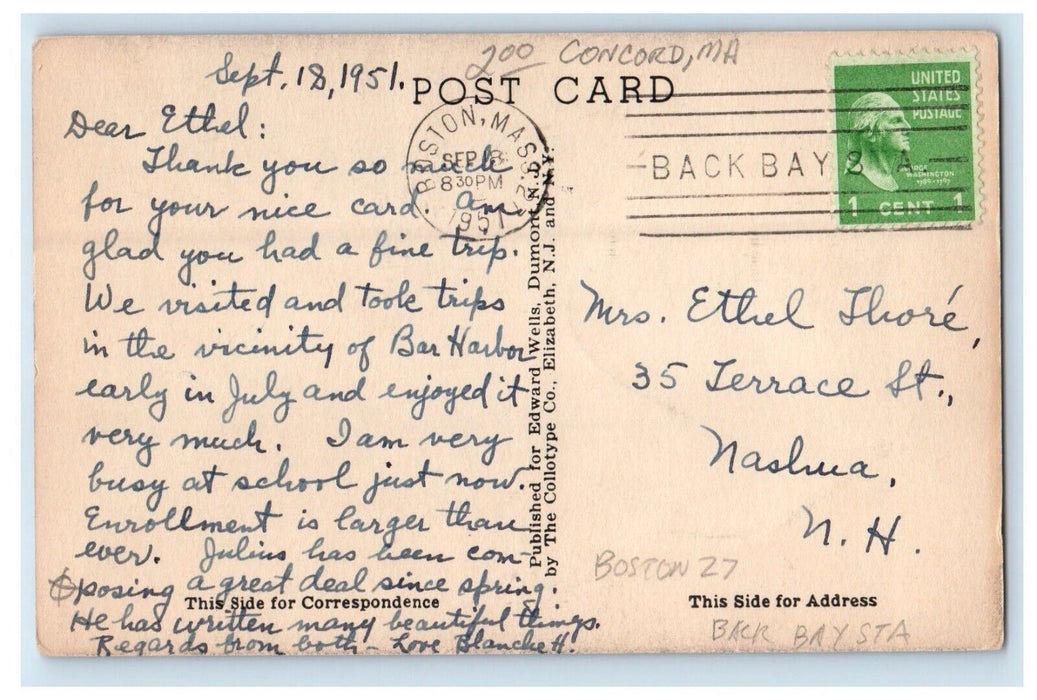 2.00 CONCORD, MA
Sept. 18, 1951.
POST CARD
Dear Ethel:
Thank you so much
for your nice card. Am
glad you had a fine trip.
We visited and took trips
in the vicinity of Bar Harbor
early in July and enjoyed it
very much. I am very
busy at school just now.
Enrollment is larger than
ever. Julius has been com-
posing a great deal since spring.
This Side for Correspondence
He has written many beautiful things.
Regards from both – Love Blanche H.
BOSTON, MASS.
SEP 18
8 30 PM
1951
BACK BAY STA.
UNITED
STATES
POSTAGE
GEORGE
WASHINGTON
1789-1797
1 CENT 1
Published for Edward Wells, Dumont, N.J.
by The Collotype Co., Elizabeth, N.J. and N.Y.
Mrs. Ethel Thoré,
35 Terrace St.,
Nashua,
N. H.
BOSTON 27
This Side for Address
BACK BAY STA